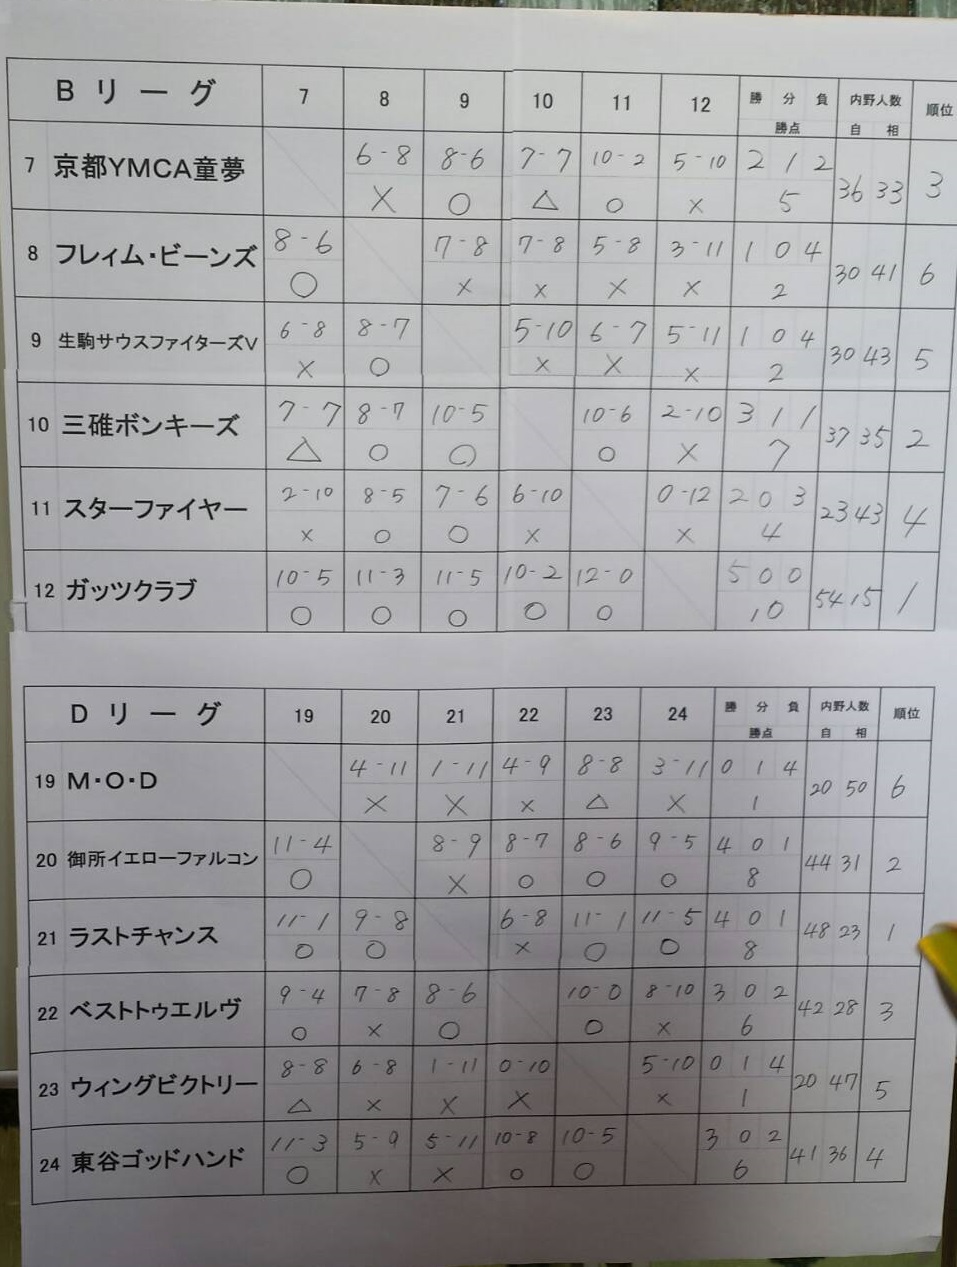 Bリーグ 7 8 9 10 11 12 勝 分 負 内野人数 順位
勝点 自 相
7 京都YMCA童夢 6-8 8-6 7-7 10-2 5-10 2 1 2 36 33 3
× ○ △ ○ × 5
8 フレィム・ビーンズ 8-6 7-8 7-8 5-8 3-11 1 0 4 30 41 6
○ × × × × 2
9 生駒サウスファイターズV 6-8 8-7 5-10 6-7 5-11 1 0 4 30 43 5
× ○ × × × 2
10 三碓ボンキーズ 7-7 8-7 10-5 10-6 2-10 3 1 1 37 35 2
△ ○ ○ ○ × 7
11 スターファイヤー 2-10 8-5 7-6 6-10 0-12 2 0 3 23 43 4
× ○ ○ × × 4
12 ガッツクラブ 10-5 11-3 11-5 10-2 12-0 5 0 0 54 15 1
○ ○ ○ ○ ○ 10
Dリーグ 19 20 21 22 23 24 勝 分 負 内野人数 順位
勝点 自 相
19 M・O・D 4-11 1-11 4-9 8-8 3-11 0 1 4 20 50 6
× × × △ × 1
20 御所イエローファルコン 11-4 8-9 8-7 8-6 9-5 4 0 1 44 31 2
○ × ○ ○ ○ 8
21 ラストチャンス 11-1 9-8 6-8 11-1 11-5 4 0 1 48 23 1
○ ○ × ○ ○ 8
22 ベストトゥエルヴ 9-4 7-8 8-6 10-0 8-10 3 0 2 42 28 3
○ × ○ ○ × 6
23 ウィングビクトリー 8-8 6-8 1-11 0-10 5-10 0 1 4 20 47 5
△ × × × × 1
24 東谷ゴッドハンド 11-3 5-9 5-11 10-8 10-5 3 0 2 41 36 4
○ × × ○ ○ 6